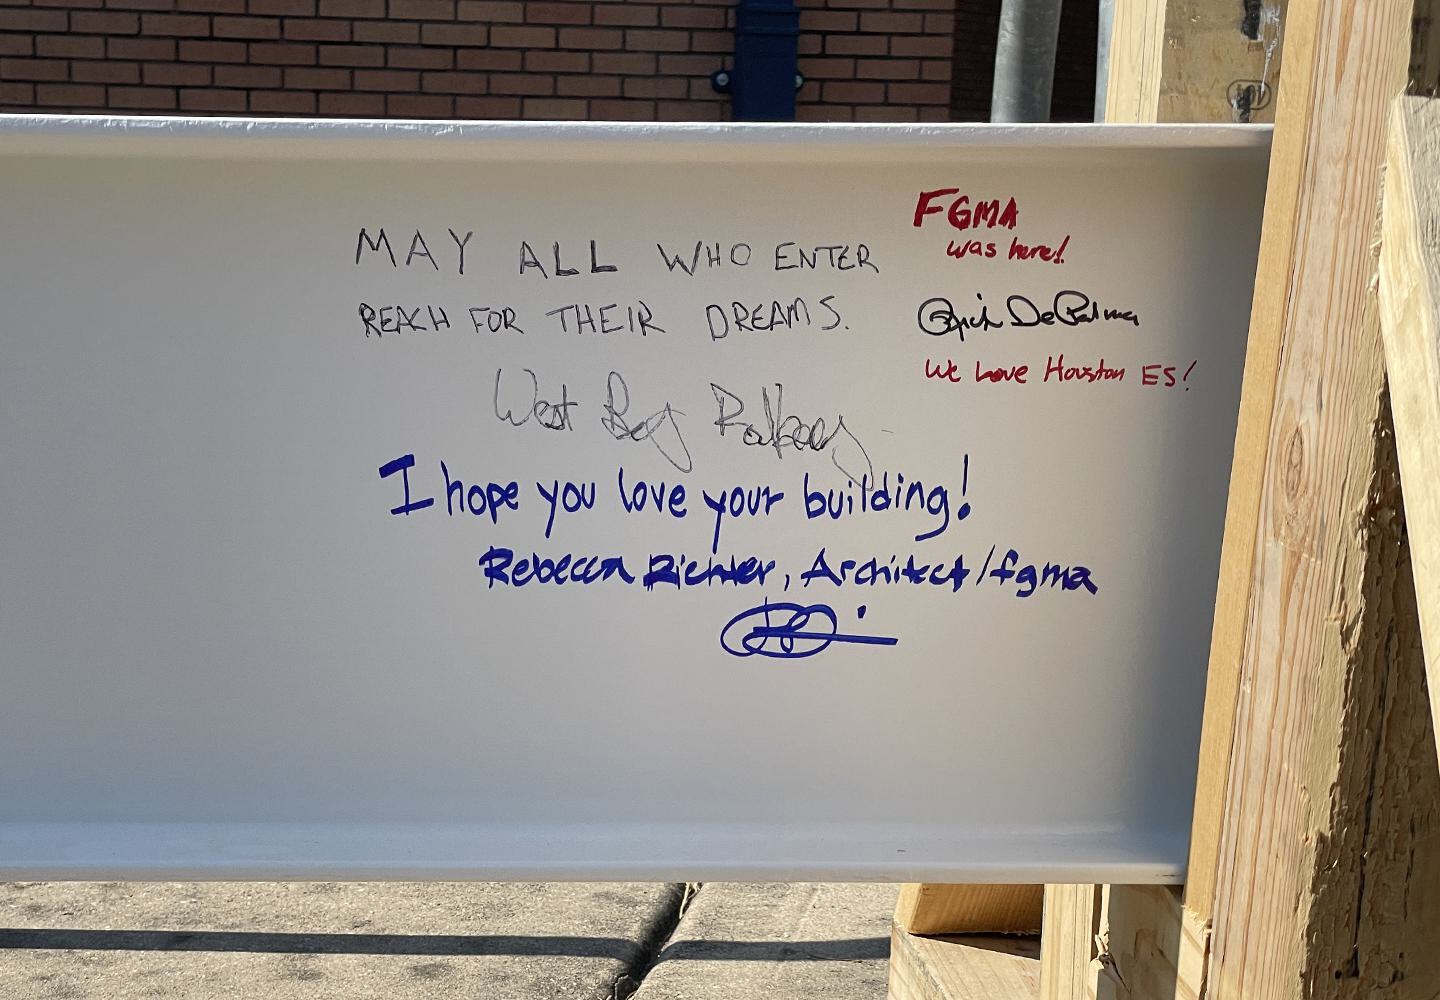 MAY ALL WHO ENTER
REACH FOR THEIR DREAMS.
West
I hope you love your building!
Rebecca Richter, Architect/fgma
FGMA
was here!
Rich DePalma
We Love Houston ES!